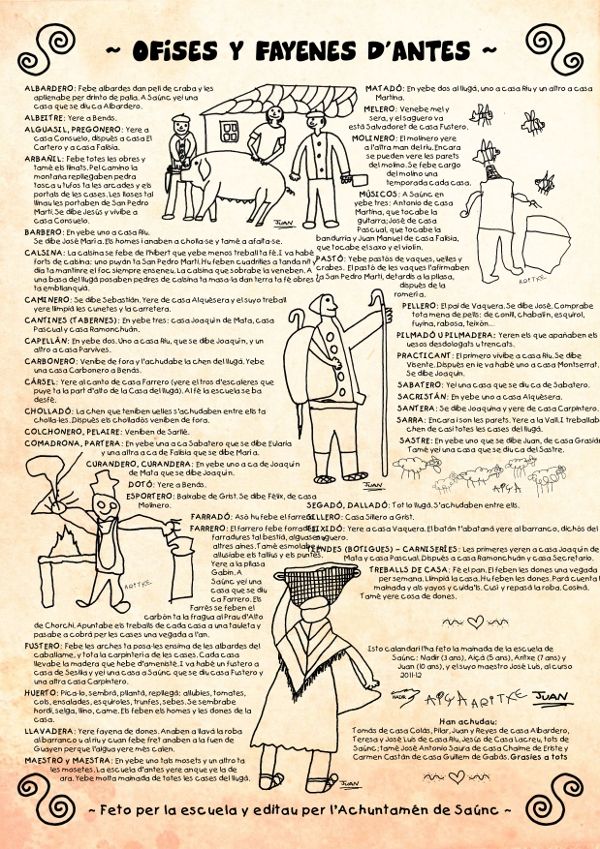 ~ OFISES Y FAYENES D'ANTES ~
ALBARDERO: Febe albardes dan pell de craba y les
apllenabe per drinto de palla. A Saúnc yei una
casa que se diu ca Albardero.
ALBEITRE: Yere a Benás.
ALGUASIL, PREGONERO: Yere a
casa Consuelo, dispués a casa El
Cartero y a casa Falisia.
ARBAÑEL: Febe totes les obres y
tamé els llinats. Pel camino la
montaña replegaben pedra
tosca u tufos ta les arcades y els
portals de les cases. Les lloses tal
llinau les portaben de San Pedro
Martí. Se dibe Jesús y vivibe a
casa Consuelo.
BARBERO: En yebe uno a casa Riu.
Se dibe José María. Els homes i anaben a cholla-se y tamé a afaita-se.
CALSINA: La calsina se febe de l'hibert que yebe menos treball ta fé. I va habé
forts de calsina: uno puyán ta San Pedro Martí. Hu feben cuadrilles a tanda nit y
dia ta mantinre el foc siempre enseneu. La calsina que sobrabe la veneben. A
una borda del llugá posaben pedres de calsina ta masa-la dan terra ta fé obres y
ta emblianquiá.
CAMINERO: Se dibe Sebastián. Yere de casa Alquèsera y el suyo treball
yere llimpiá les cunetes y la carretera.
CANTINES (TABERNES): En yebe tres: casa Joaquín de Mata, casa
Pascual y casa Ramonchuán.
CAPELLÁN: En yebe dos. Uno a casa Riu, que se dibe Joaquín, y un
altro a casa Parvives.
CARBONERO: Venibe de fora y l'achudabe la chen del llugá. Yebe
una casa Carbonero a Benás.
CÁRSEL: Yere al canto de casa Farrero (yere el tros d'escaleres que
puye ta la part d'alto de la Casa del llugá). Al fé la escuela se ba
desfé.
CHOLLADÓ: La chen que teniben uelles s'achudaben entre ells ta
cholla-les. Dispués els cholladós veniben de fora.
COLCHONERO, PELAIRE: Veniben de Sarllé.
COMADRONA, PARTERA: En yebe una a ca Sabatero que se dibe Eularia
y una altra a ca de Falisia que se dibe María.
CURANDERO, CURANDERA: En yebe uno a ca de Joaquín
de Mata que se dibe Joaquín.
DOTÓ: Yere a Benás.
ESPORTERO: Baixabe de Grist. Se dibe Félix, de casa
Molinero.
FARRADÓ: Asò hu febe el farrero.
FARRERO: El farrero febe forrades,
farradures tal bestiá, alguas y
altres aines. Tamé esmolabe y
allusiabe els tallius y els puntes.
Yere a la pllasa
Gabin. A
Saúnc yei una
casa que se diu
ca Farrero. Els
Farrés se feben el
carbón ta la fragua al Prau d'Alto
de Chorchi. Apuntabe els treballs de cada casa a una tauleta y
pasabe a cobrá per les cases una vegada a l'an.
FUSTERO: Febe les arches ta posa-les ensima de les albardes del
caballame, y tota la carpintería de les cases. Cada casa
llevabe la madera que hebe d'amenisté. I va habé un fustero a
casa de Sesilia y yei una casa a Saúnc que se diu casa Fustero y
una altra casa Carpintero.
HUERTO: Pica-lo, sembrá, plantá, replegá: allubies, tomates,
cols, ensalades, esquiroles, trunfes, sebes. Se sembrabe
hordi, selga, llino, came. Els feben els homes y les dones de la
casa.
LLAVADERA: Yere fayena de dones. Anaben a llavá la roba
al barranco u al riu y cuan febe fret anaben a la fuen de
Guayen perque l'aigua yere més calen.
MAESTRO y MAESTRA: En yebe uno tals mosets y un altro ta
les mosetes. La escuela d'antes yere an que ye la de
ara. Yebe molta mainada de totes les cases del llugá.
MATADÓ: En yebe dos al llugá, uno a casa Riu y un altro a casa
Martina.
MELERO: Venebe mel y
sera, y el saguero va
está Salvadoret de casa Fustero.
MOLINERO: El molinero yere
a l'altra man del riu. Encara
se pueden vere les parets
del molino. Se febe cargo
del molino una
temporada cada casa.
MÚSICOS: A Saúnc en
yebe tres: Antonio de casa
Martina, que tocabe la
guitarra; José de casa
Pascual, que tocabe la
bandurria y Juan Manuel de casa Falisia,
que tocabe el saxo y el violín.
PASTÓ: Yebe pastós de vaques, uelles y
crabes. El pastó de les vaques l'afirmaben
ta San Pedro Martí, detardis a la pllasa,
dispués de la
romería.
PELLERO: El pai de Vaquera. Se dibe José. Comprabe
tota mena de pells: de conill, chabalín, esquirol,
fuyina, rabosa, teixón...
PILMADÓ U PILMADERA: Yeren els que apañaben els
uesos desdollogats u trencats.
PRACTICANT: El primero vivibe a casa Riu. Se dibe
Visente. Dispués en ie va habé uno a casa Montserrat.
Se dibe Joaquín.
SABATERO: Yei una casa que se diu ca de Sabatero.
SACRISTÁN: En yebe uno a casa Alquèsera.
SANTERA: Se dibe Joaquina y yere de casa Carpintero.
SARRA: Encara ison les parets. Yere a la Vall. I treballabe
chen de casi totes les cases del llugá.
SASTRE: En yebe uno que se dibe Juan, de casa Grasián.
Tamé yei una casa que se diu ca del Sastre.
SEGADÓ, DALLADÓ: Tot lo llugá. S'achudaben entre ells.
SILLERO: Casa Sillero a Grist.
TEIXIDÓ: Yere a casa Vaquera. El batán l'abataná yere al barranco, dichós del
saguero.
TIENDES (BOTIGUES) - CARNISERÍES: Les primeres yeren a casa Joaquín de
Mata y casa Pascual. Dispués a casa Ramonchuán y casa Secretario.
TREBALLS DE CASA: Fé el pan. El feben les dones una vegada
per semana. Llimpiá la casa. Hu feben les dones. Pará cuenta ta la
mainada y als yayos y cuida'ls. Cusí y repasá la roba. Cosiná.
Tamé yere cosa de dones.
Isto calandari l'ha feto la mainada de la escuela de
Saúnc: Nadir (3 ans), Aiçá (5 ans), Aritxe (7 ans) y
Juan (10 ans), y el suyo maestro José Luis, al curso
2011-12
NADIR AIÇA ARITXE JUAN
Han achudau:
Tomás de casa Colás, Pilar, Juan y Reyes de casa Albardero,
Teresa y José Luis de casa Riu, Jesús de casa Lacreu, tots de
Saúnc; tamé José Antonio Saura de casa Chaime de Eriste y
Carmen Castán de casa Guillem de Gabás. Grasies a tots
JUAN
ARITXE
JUAN
AIÇA
ARITXE
JUAN
~ Feto per la escuela y editau per l'Achuntamén de Saúnc ~